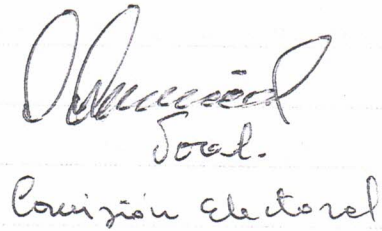 Vocal.
Comizión Electoral